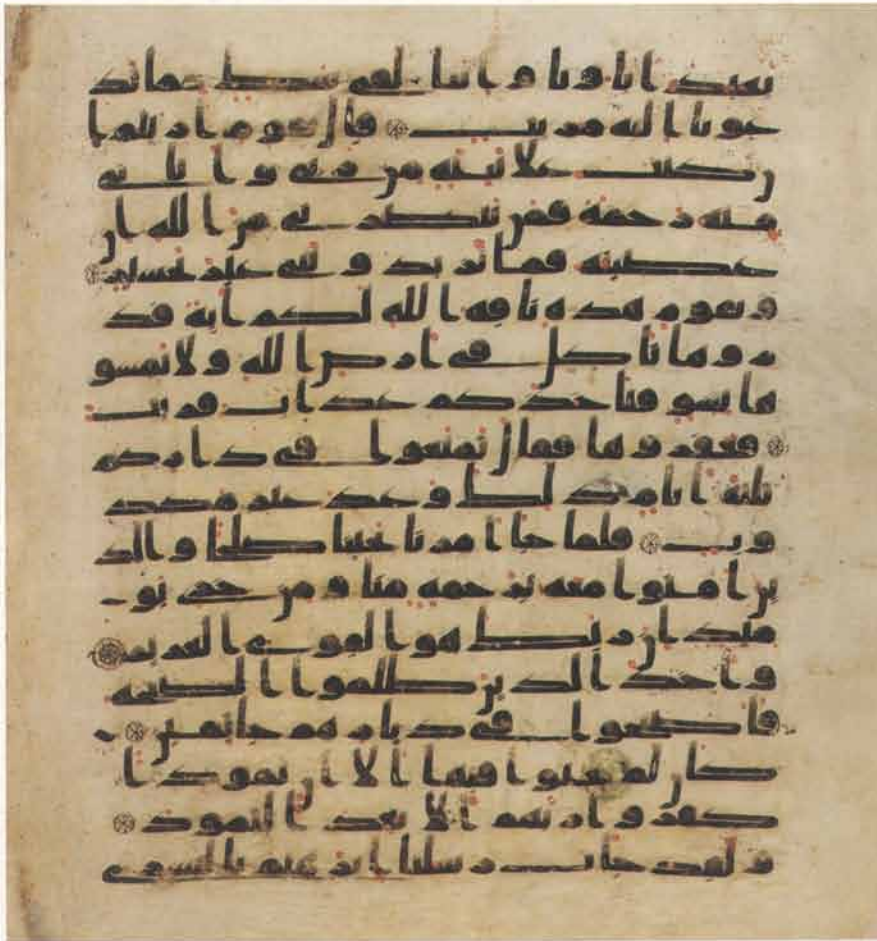 يعبد اباونا واننا لفى شك مما تد
عونا اليه مريب قال يقوم اريتم ا
ن كنت على بينة من ربى واتينى
منه رحمة فمن ينصرنى من الله ان
عصيته فما تزيدوننى غير تخسير
ويقوم هذه ناقة الله لكم اية فذ
روها تاكل فى ارض الله ولا تمسو
ها بسو فياخذكم عذاب قريب
فعقروها فقال تمتعوا فى داركم
ثلثة ايام ذلك وعد غير مكذ
وب فلما جا امرنا نجينا صلحا والذ
ين امنوا معه برحمة منا ومن خزى يو
مئذ ان ربك هو القوى العزيز
واخذ الذين ظلموا الصيحة
فاصبحوا فى ديارهم جاثمين
كان لم يغنوا فيها الا ان ثمودا
كفروا ربهم الا بعدا لثمود
ولقد جات رسلنا ابرهيم بالبشرى